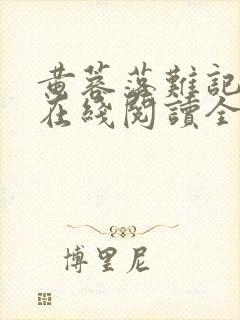 黄蓉落難記
在綫閱讀全
博里尼